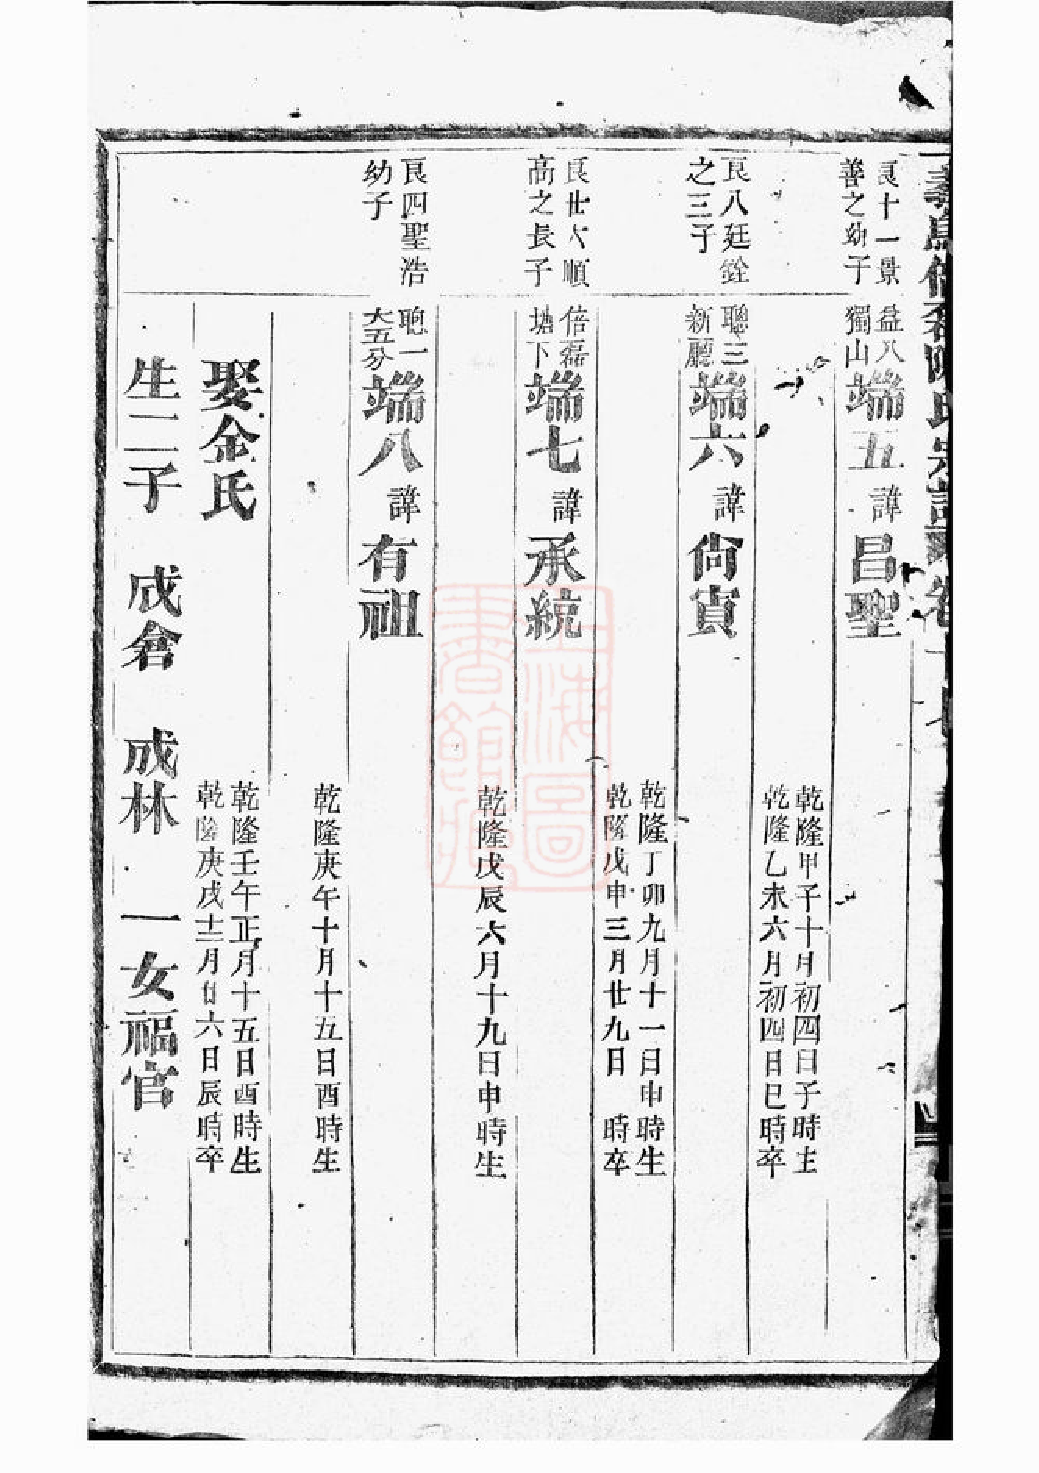 義烏倍磊陳氏宗譜
良十一景
善之幼子
益八
獨山
端五諱昌聖
乾隆甲子十月初四日子時生
乾隆乙未六月初四日巳時卒
良八廷銓
之三子
聰三
新廳
端六諱尚賓
乾隆丁卯九月十一日申時生
乾隆戊申三月廿九日　時卒
良廿六順
高之長子
倍磊
塘下
端七諱承統
乾隆戊辰六月十九日申時生
良四聖浩
幼子
聰一
大五分
端八諱有祖
乾隆庚午十月十五日酉時生
娶金氏
乾隆壬午正月十五日酉時生
乾隆庚戌十二月廿六日辰時卒
生二子　成倉　成林　一女福官
上海圖
書館藏